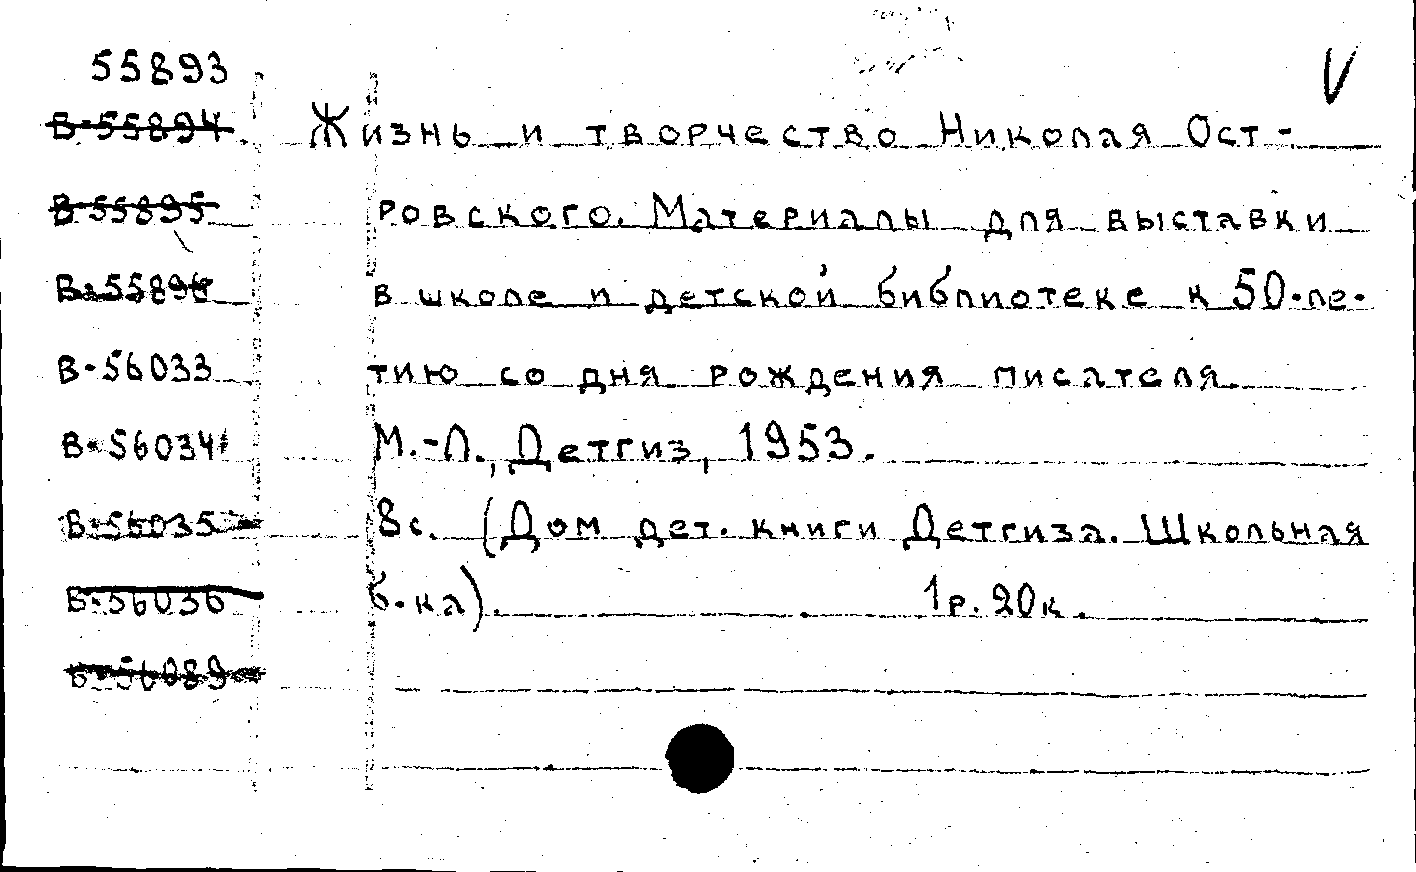 55893
V
В-55894. Жизнь и творчество Николая Ост-
В-55895 ровского. Материалы для выставки
В-55896 в школе и детской библиотеке к 50-ле-
В-56033 тию со дня рождения писателя.
В-56034 М.-Л., Детгиз, 1953.
В-56035 8с. (Дом дет. книги Детгиза. Школьная
В-56036 б-ка). 1р. 20к.